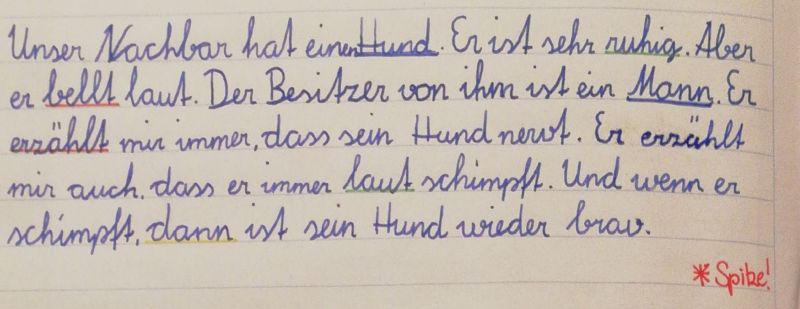 Unser Nachbar hat einen Hund. Er ist sehr ruhig. Aber
er bellt laut. Der Besitzer von ihm ist ein Mann. Er
erzählt mir immer, dass sein Hund nervt. Er erzählt
mir auch, dass er immer laut schimpft. Und wenn er
schimpft, dann ist sein Hund wieder brav.
*Spike!